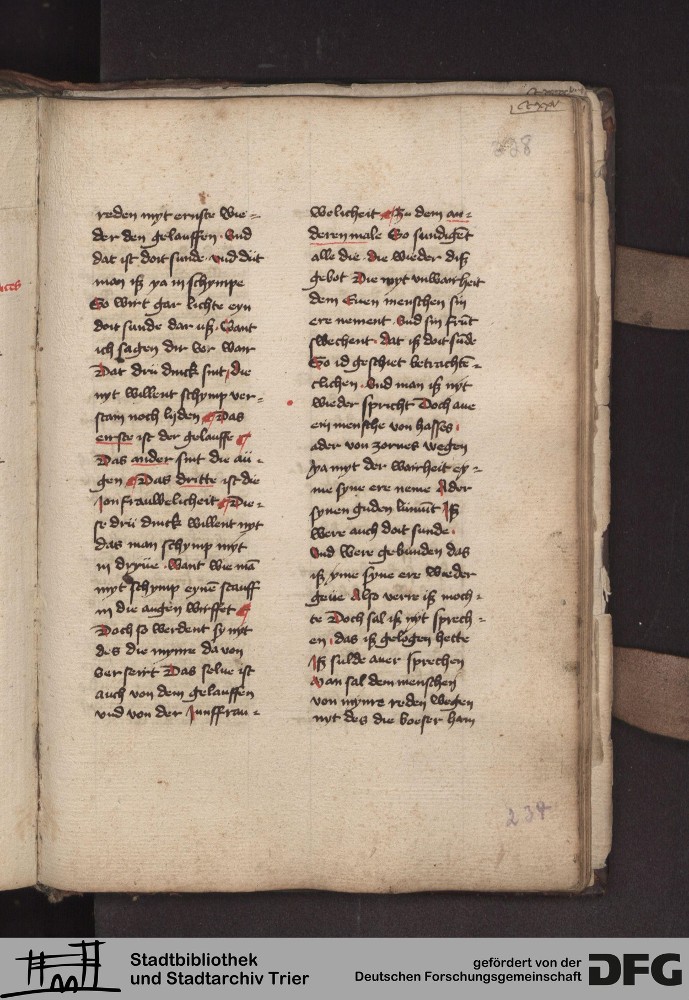 238
reden myt ernste wie =
der den gelauffen · Vnd
dat ist doit sunde · vnd düt
man iß ya in schympe
So wirt gar lichte eyn
doit sunde dar uß · Want
ich sagen dir vor wair
Dat drü dinck sint / die
nyt willent schymp ver =
stain noch lyden Das
eirste ist der gelauffe
Das ander sint die aü =
gen Das dritte ist die
Jonfrauwelicheit Die =
se drü dinck willent nyt
das man schymp myt
in dryüe · want wie mā
myt schymp eynē stauff
in die augen wirffet
Doch so werdent sy nyt
des die mynre da von
verseirt Das selue ist
auch von dem gelauffen
vnd von der Junffrau =
welicheit Zu dem an =
deren male So sundigēt
alle die · die wieder diß
gebot Die myt vnwairheit
dem Euen menschen sin
ere nement · Vnd sin frūt
swechent · dat iß doit sūde
So id geschiet betrachtē =
clichen · vnd man iß nyt
wieder spricht Doch aue
ein mensche von hasses
ader von zornes wegen
ya myt der wairheit ey =
me syne ere neme Ader
synen guden lümūt Iß
were auch doit sunde ·
Vnd were gebunden das
iß yme syne ere wieder
geue Also verre iß moch =
te Doch sal iß nyt sprech =
en · das iß gelogen hette
Iß sulde auer sprechen
Man sal dem menschen
von mynre reden wegen
nyt des die boeser hain
234
Stadtbibliothek
und Stadtarchiv Trier
gefördert von der
Deutschen Forschungsgemeinschaft
DFG